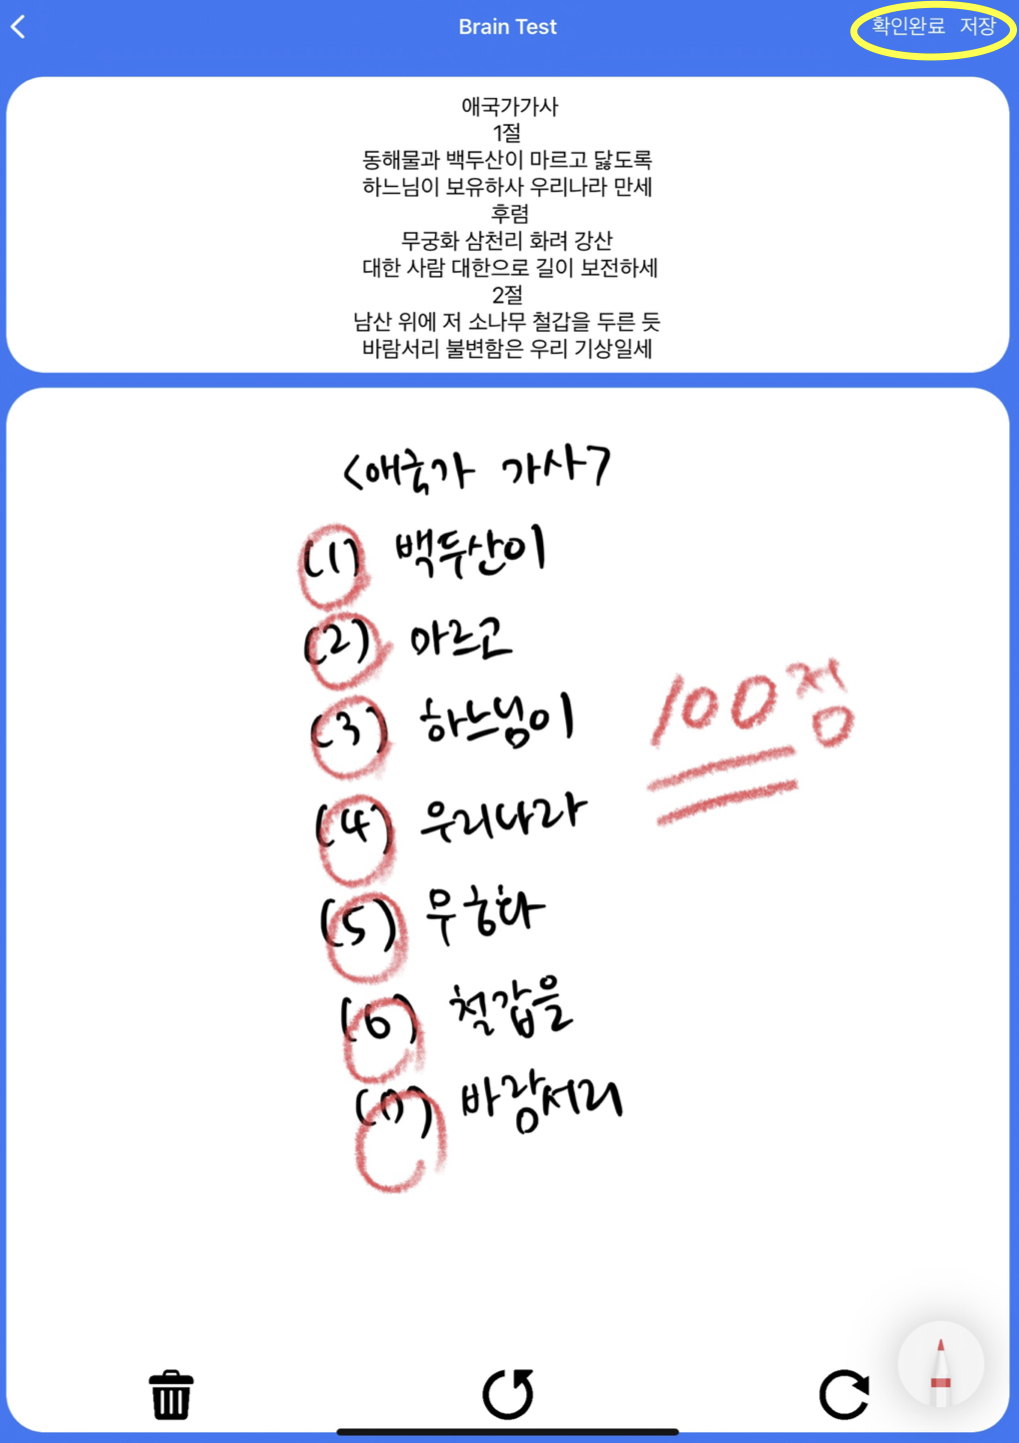 Brain Test
확인완료 저장
애국가가사
1절
동해물과 백두산이 마르고 닳도록
하느님이 보유하사 우리나라 만세
후렴
무궁화 삼천리 화려 강산
대한 사람 대한으로 길이 보전하세
2절
남산 위에 저 소나무 철갑을 두른 듯
바람서리 불변함은 우리 기상일세
<애국가 가사>
(1) 백두산이
(2) 마르고
(3) 하느님이
(4) 우리나라
100점
(5)
(6) 철갑을
(7) 바람서리